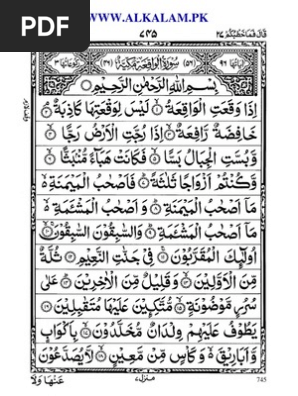 WWW.ALKALAM.PK
PDF
قال فما خطبكم ٢٧
٧٤٥
سُوْرَةُ الْوَاقِعَةِ مَكِّيَّةٌ
بِسْمِ اللهِ الرَّحْمٰنِ الرَّحِيْمِ
اِذَا وَقَعَتِ الْوَاقِعَةُ ۝١ لَيْسَ لِوَقْعَتِهَا كَاذِبَةٌ ۝٢
خَافِضَةٌ رَّافِعَةٌ ۝٣ اِذَا رُجَّتِ الْاَرْضُ رَجًّا ۝٤
وَّبُسَّتِ الْجِبَالُ بَسًّا ۝٥ فَكَانَتْ هَبَآءً مُّنْۢبَثًّا ۝٦
وَّكُنْتُمْ اَزْوَاجًا ثَلٰثَةً ۝٧ فَاَصْحٰبُ الْمَيْمَنَةِ
مَآ اَصْحٰبُ الْمَيْمَنَةِ ۝٨ وَاَصْحٰبُ الْمَشْـَٔمَةِ
مَآ اَصْحٰبُ الْمَشْـَٔمَةِ ۝٩ وَالسّٰبِقُوْنَ السّٰبِقُوْنَ ۝١٠
اُولٰٓئِكَ الْمُقَرَّبُوْنَ ۝١١ فِيْ جَنّٰتِ النَّعِيْمِ ۝١٢ ثُلَّةٌ
مِّنَ الْاَوَّلِيْنَ ۝١٣ وَقَلِيْلٌ مِّنَ الْاٰخِرِيْنَ ۝١٤ عَلٰى
سُرُرٍ مَّوْضُوْنَةٍ ۝١٥ مُّتَّكِـِٕيْنَ عَلَيْهَا مُتَقٰبِلِيْنَ ۝١٦
يَطُوْفُ عَلَيْهِمْ وِلْدَانٌ مُّخَلَّدُوْنَ ۝١٧ بِاَكْوَابٍ
وَّاَبَارِيْقَ وَكَاْسٍ مِّنْ مَّعِيْنٍ ۝١٨ لَّا يُصَدَّعُوْنَ
عَنْهَا وَلَا
منزل ٧
745